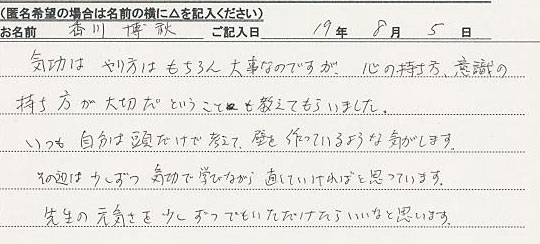 (匿名希望の場合は名前の横に△を記入ください)
お名前 香川 博 ご記入日 19 年 8 月 5 日
気功は やり方はもちろん大事なのですが、心の持ち方、意識の
持ち方が大切だということも教えてもらいました。
いつも 自分は頭だけで考えて、壁を作っているような気がします。
その辺は少しずつ 気功で学びながら 直していければと思っています。
先生の元気さを少しずつでもいただけたらいいなと思います。